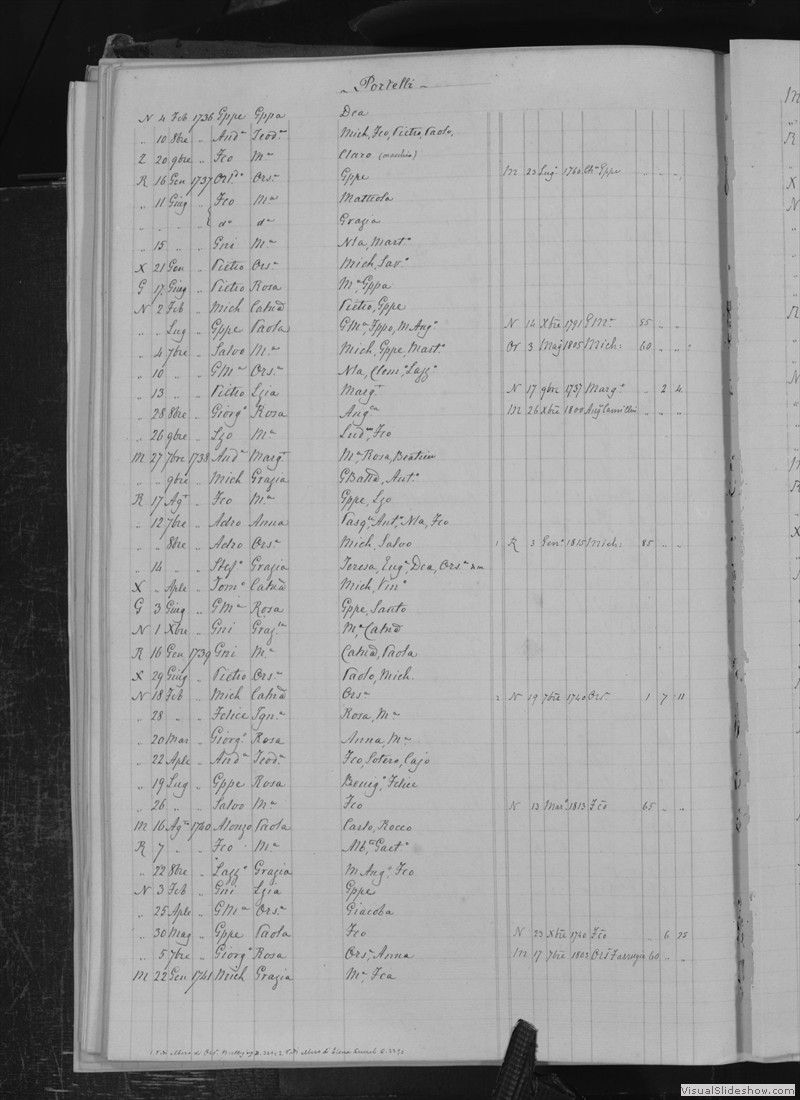 Portelli
N 4 Feb 1736 Gppe Gppa Dea
„ 10 8bre „ Andª Teodª Mich, Fco, Pietro, Paolo.
Z 20 9bre „ Fco Mª Claro (maschio)
R 16 Gen 1737 Orsª Gppe M 23 Lug 1760 Gppe „ „ „
„ 11 Giug „ Fco Mª Matteola
„ „ „ „ dº dª Grazia
„ 15 „ „ Gni Mª Nla, Martº
X 21 Gen „ Pietro Orsª Mich, Savº
G 17 Giug „ Pietro Rosa Mª Gppa
N 2 Feb „ Mich Catnª Pietro, Gppe
„ „ Lug „ Gppe Paola GMª, Fppo, MAngª N 14 Xbre 1791 GMª 55 „ „
„ 4 7bre „ Salvo Mª Mich, Gppe, Martº Or 3 Mag 1805 Mich: 60 „ „
„ 10 „ „ GMª Orsª Nla, Clemº Lazzº
„ 13 „ „ Pietro Lzia Margª N 17 9bre 1737 Margª „ 2 4
„ 28 8bre „ Giorgº Rosa Angª M 26 Xbre 1800 Angª Camilleri „ „ „
„ 26 9bre „ Lzo Mª Ludº, Fco
M 27 7bre 1738 Andª Margª Mª, Rosa, Beatrice
„ „ 9bre „ Mich Grazia GBatta, Antº
R 17 Agº „ Fco Mª Gppe, Lzo
„ 12 7bre „ Adro Anna Pasqº, Antº, Nla, Fco
„ „ 8bre „ Adro Orsª Mich, Salvo 1 R 3 Genº 1815 Mich: 85 „ „
„ 14 „ „ Stefº Grazia Teresa, Eugª, Dea, Orsª
X „ Aple „ Tomº Catnª Mich, Vinº
G 3 Giug „ GMª Rosa Gppe, Santo
N 1 Xbre „ Gni Grazª Mª Catnª
R 16 Gen 1739 Gni Mª Catnª, Paola
X 29 Giug „ Pietro Orsª Paolo, Mich
N 18 Feb „ Mich Catnª Orsª 2 N 19 7bre 1740 Orsª 1 7 11
„ 28 „ „ Felice Ignª Rosa, Mª
„ 20 Mar „ Giorgº Rosa Anna, Mª
„ 22 Aple „ Andª Teodª Fco, Sotero, Cajo
„ 19 Lug „ Gppe Rosa Benigº, Felice
„ 26 „ „ Salvo Mª Fco N 13 Marº 1813 Fco 65 „ „
M 16 Agº 1740 Alonzo Paola Carlo, Rocco
R 7 „ „ Fco Mª Albº, Gaetº
„ 22 8bre „ Lazzº Grazia MAngº, Fco
N 3 Feb „ Gni Lzia Gppe
„ 25 Aple „ GMª Orsª Giacoba
„ 30 Mag „ Gppe Paola Fco N 23 Xbre 1740 Fco „ 6 25
„ 5 7bre „ Giorgº Rosa Orsª, Anna M 17 7bre 1802 Orsª Farrugia 60 „ „
M 22 Gen 1741 Mich Grazia Mª, Fca
VisualSlideshow.com